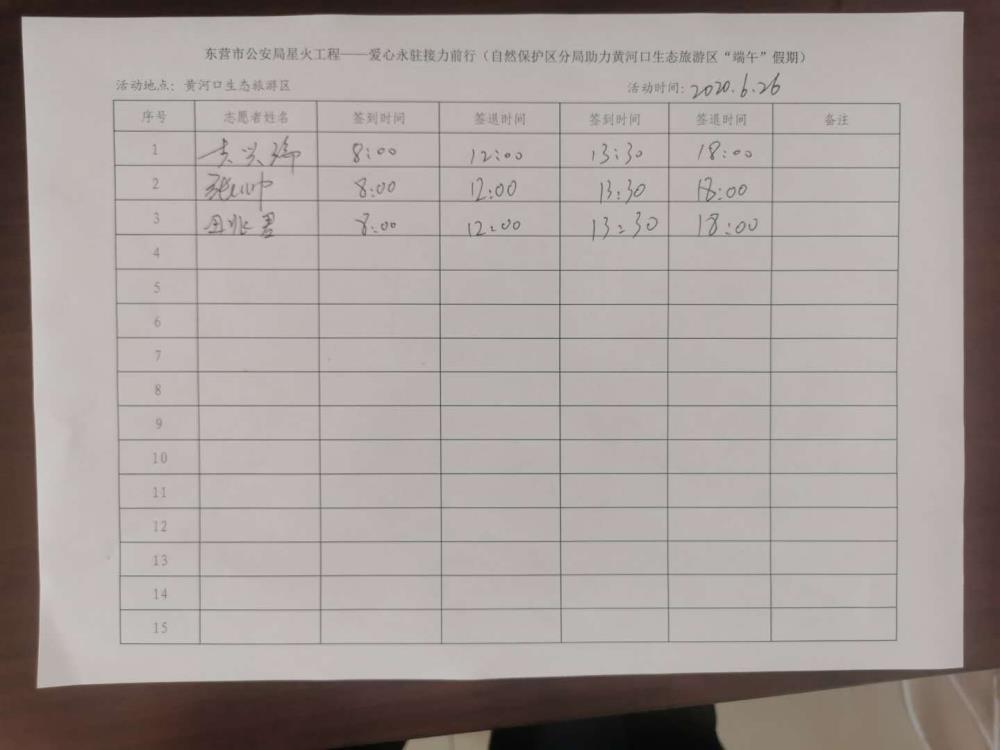 东营市公安局星火工程——爱心永驻接力前行（自然保护区分局助力黄河口生态旅游区“端午”假期）
活动地点：黄河口生态旅游区 活动时间：2020.6.26
序号 志愿者姓名 签到时间 签退时间 签到时间 签退时间 备注
1 8:00 12:00 13:30 18:00
2 8:00 12:00 13:30 18:00
3 8:00 12:00 13:30 18:00
4
5
6
7
8
9
10
11
12
13
14
15